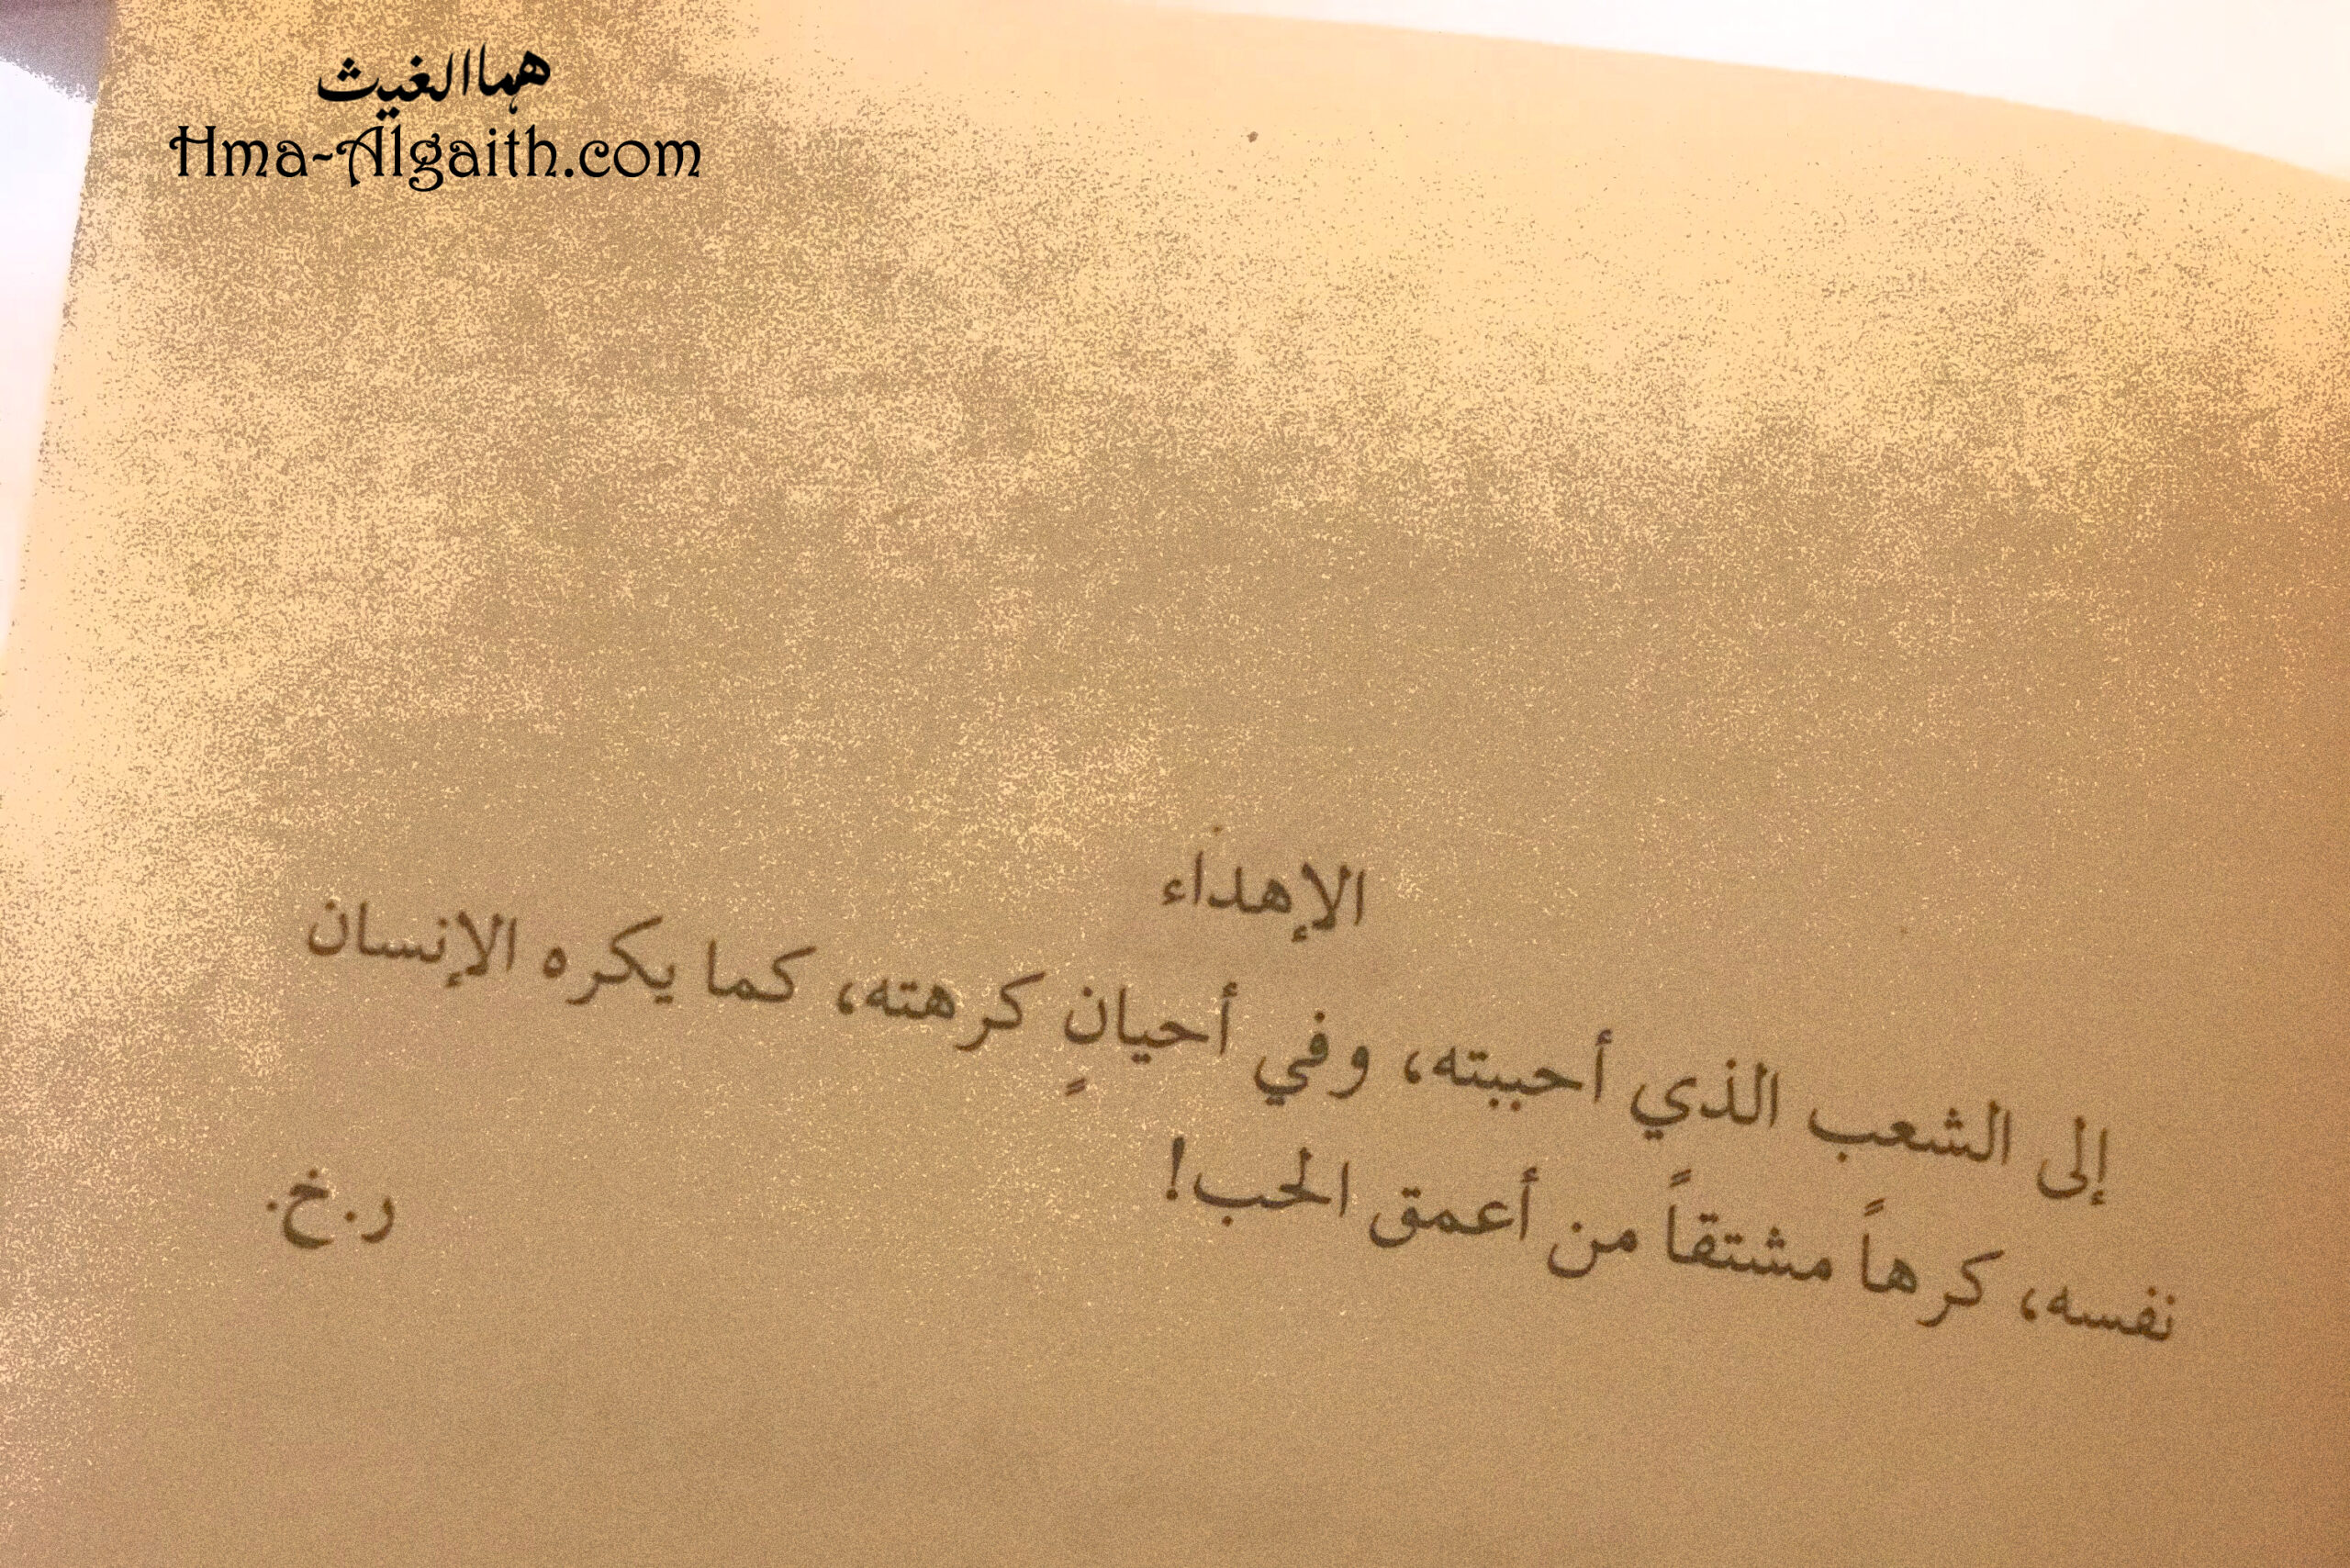 هما الغيث
Hma-Algaith.com
الإهداء
إلى الشعب الذي أحببته، وفي أحيانٍ كرهته، كما يكره الإنسان
نفسه، كرهاً مشتقاً من أعمق الحب!
ر.خ.